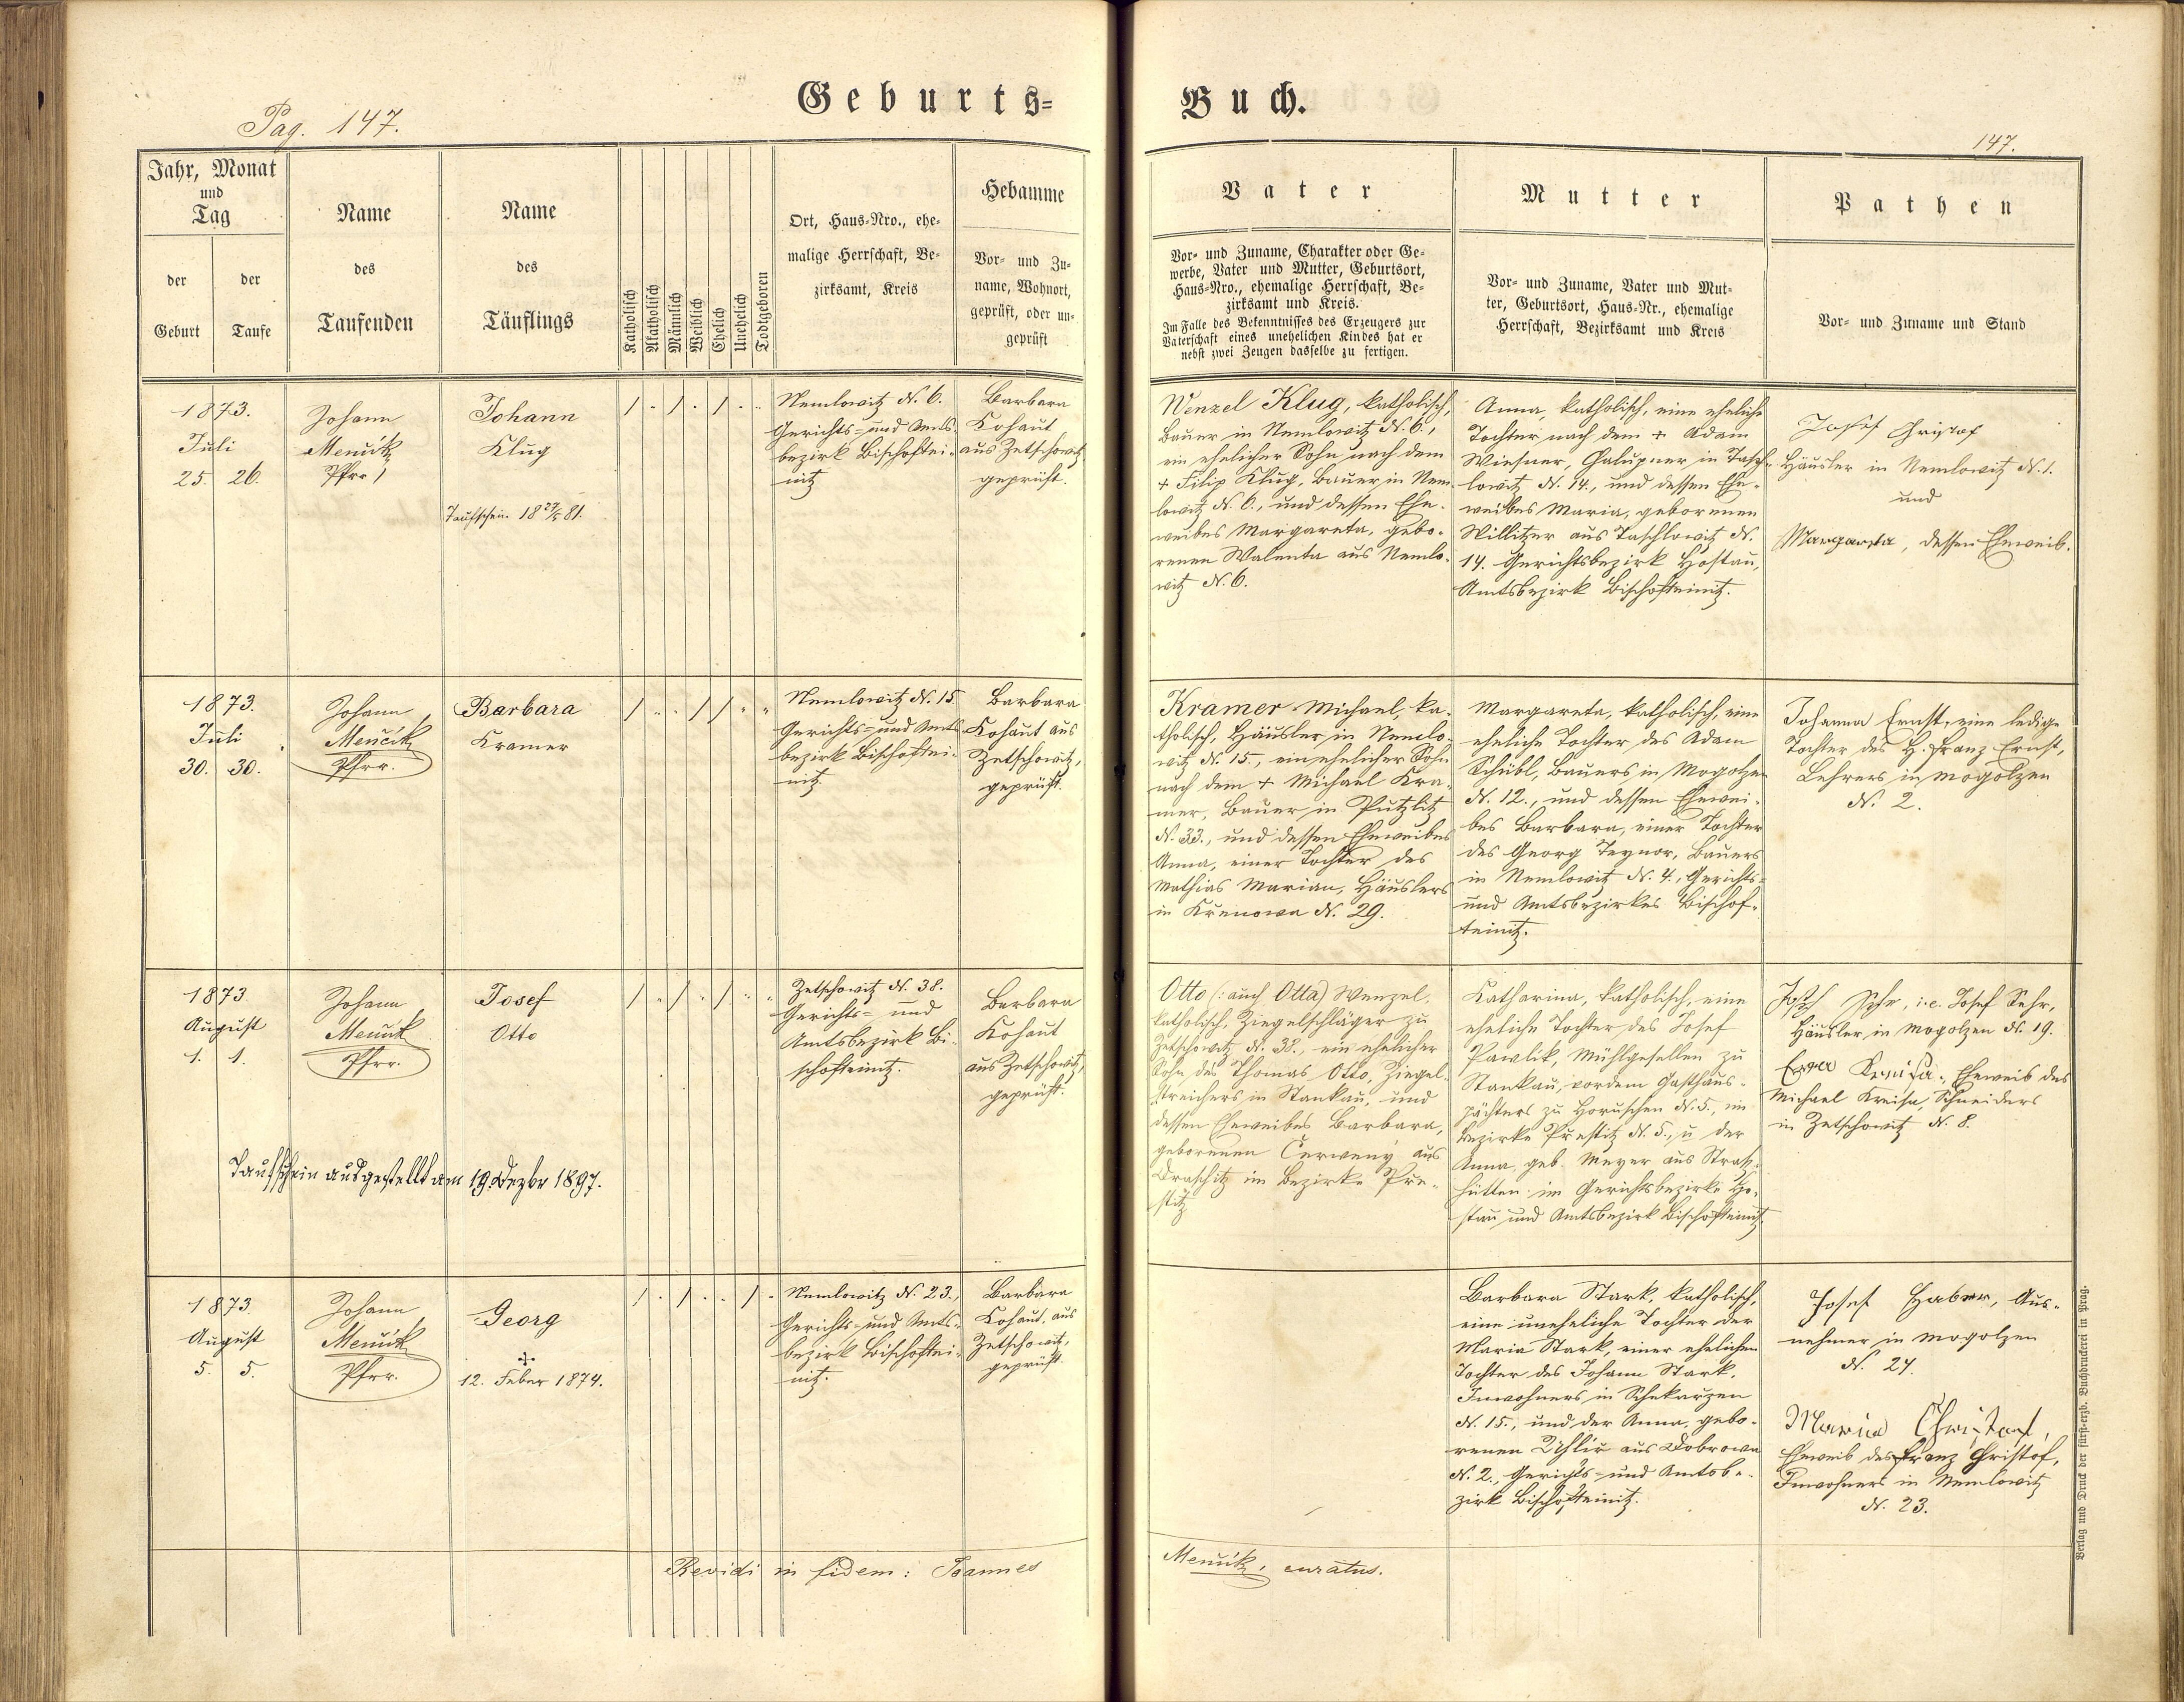 Geburts=
Buch.
Pag. 147.
147.
Jahr, Monat
und
Tag
der
Geburt
der
Taufe
Name
des
Taufenden
Name
des
Täuflings
Katholisch
Akatholisch
Männlich
Weiblich
Ehelich
Unehelich
Todtgeboren
Ort, Haus-Nro., ehe-
malige Herrschaft, Be-
zirksamt, Kreis
Hebamme
Vor- und Zu-
name, Wohnort,
geprüft, oder un-
geprüft
Vater
Vor- und Zuname, Charakter oder Ge-
werbe, Vater und Mutter, Geburtsort,
Haus-Nro., ehemalige Herrschaft, Be-
zirksamt und Kreis.
Im Falle des Bekenntnisses des Erzeugers zur
Vaterschaft eines unehelichen Kindes hat er
nebst zwei Zeugen dasselbe zu fertigen.
Mutter
Vor- und Zuname, Vater und Mut-
ter, Geburtsort, Haus-Nr., ehemalige
Herrschaft, Bezirksamt und Kreis
Pathen
Vor- und Zuname und Stand
1873.
Juli
25. 26.
Johann
Menčik
Pfrr
Johann
Klug
Taufschein 18 27/5 81.
Nemlowitz N. 6.
Gerichts- und Amts-
bezirk Bischoftei-
nitz
Barbara
Kohaut
aus Zetschowitz
geprüft.
Wenzel Klug, katholisch,
Bauer in Nemlowitz N. 6.,
ein ehelicher Sohn nach dem
+ Filip Klug, Bauer in Nem-
lowitz N. 6., und dessen Ehe-
weibes Margareta, gebo-
renen Walenta aus Nemlo-
witz N. 6.
Anna, katholisch, eine eheliche
Tochter nach dem + Adam
Wiesner, Chalupner in Tasch-
lowitz N. 14., und dessen Ehe-
weibes Maria, geborenen
Willitzer aus Taschlowitz N.
14. Gerichtsbezirk Hostau,
Amtsbezirk Bischofteinitz.
Josef Christof
Häusler in Nemlowitz N. 1.
und
Margareta, dessen Eheweib.
1873.
Juli
30. 30.
Johann
Menčik
Pfrr.
Barbara
Kramer
Nemlowitz N. 15
Gerichts- und Amts-
bezirk Bischoftei-
nitz
Barbara
Kohaut aus
Zetschowitz,
geprüft.
Kramer Michael, ka-
tholisch, Häusler in Nemlo-
witz N. 15., ein ehelicher Sohn
nach dem + Michael Kra-
mer, Bauer in Putzlitz
N. 33., und dessen Eheweibes
Anna, einer Tochter des
Mathias Marian, Häuslers
in Křenowa N. 29.
Margareta, katholisch, eine
eheliche Tochter des Adam
Schübl, Bauers in Mogolzen
N. 12., und dessen Ehewei-
bes Barbara, einer Tochter
des Georg Teynor, Bauers
in Nemlowitz N. 4., Gerichts-
und Amtsbezirkes Bischof-
teinitz.
Johanna Ernst, eine ledige
Tochter des H. Franz Ernst,
Lehrers in Mogolzen
N. 2.
1873
August
1. 1.
Johann
Menčik
Pfrr.
Josef
Otto
Taufschein ausgestellt am 19. Dezbr 1897.
Zetschowitz N. 38.
Gerichts- und
Amtsbezirk Bi-
schofteinitz.
Barbara
Kohaut
aus Zetschowitz,
geprüft.
Otto (: auch Otta) Wenzel,
katholisch, Ziegelschläger zu
Zetschowitz N. 38., ein ehelicher
Sohn des Thomas Otto, Ziegel-
streichers in Stankau, und
dessen Eheweibes Barbara,
geborenen Červený aus
Draschitz im Bezirke Pře-
stitz
Katharina, katholisch, eine
eheliche Tochter des Josef
Pawlik, Mühlgesellen zu
Stankau, vordem Gasthaus-
pächters zu Horuschen N. 5., im
Bezirke Přestitz N. 5., u. der
Anna, geb. Meyer aus Straß-
hütten im Gerichtsbezirke Ho-
stau und Amtsbezirk Bischofteinitz.
Josef Sehr, i.e. Josef Sehr,
Häusler in Mogolzen N. 19.
Kreisa, Eheweib des
Michael Kreisa, Schneiders
in Zetschowitz N. 8.
1873.
August
5. 5.
Johann
Menčik
Pfrr.
Georg
+
12. Feber 1874.
Nemlowitz N. 23.,
Gerichts- und Amts-
bezirk Bischoftei-
nitz.
Barbara
Kohaut, aus
Zetschowitz,
geprüft.
Barbara Stark, katholisch,
eine uneheliche Tochter der
Maria Stark, einer ehelichen
Tochter des Johann Stark,
Inwohners in Schekarzen
N. 15., und der Anna, gebo-
renen Uhlíř aus Dobrowa
N. 2., Gerichts- und Amtsbe-
zirk Bischofteinitz.
Josef Haber, Aus-
nehmer in Mogolzen
N. 24.
Maria Christof,
Eheweib des Franz Christof,
Inwohners in Nemlowitz
N. 23.
Revidi in fidem: Joannes
Menčik, curatus.
Verlag und Druck der fürst-erzb. Buchdruckerei in Prag.